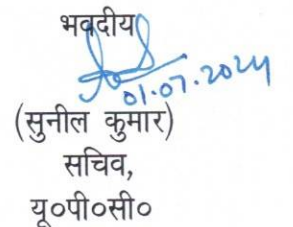 भवदीय
01.07.2024
(सुनील कुमार)
सचिव,
यू०पी०सी०